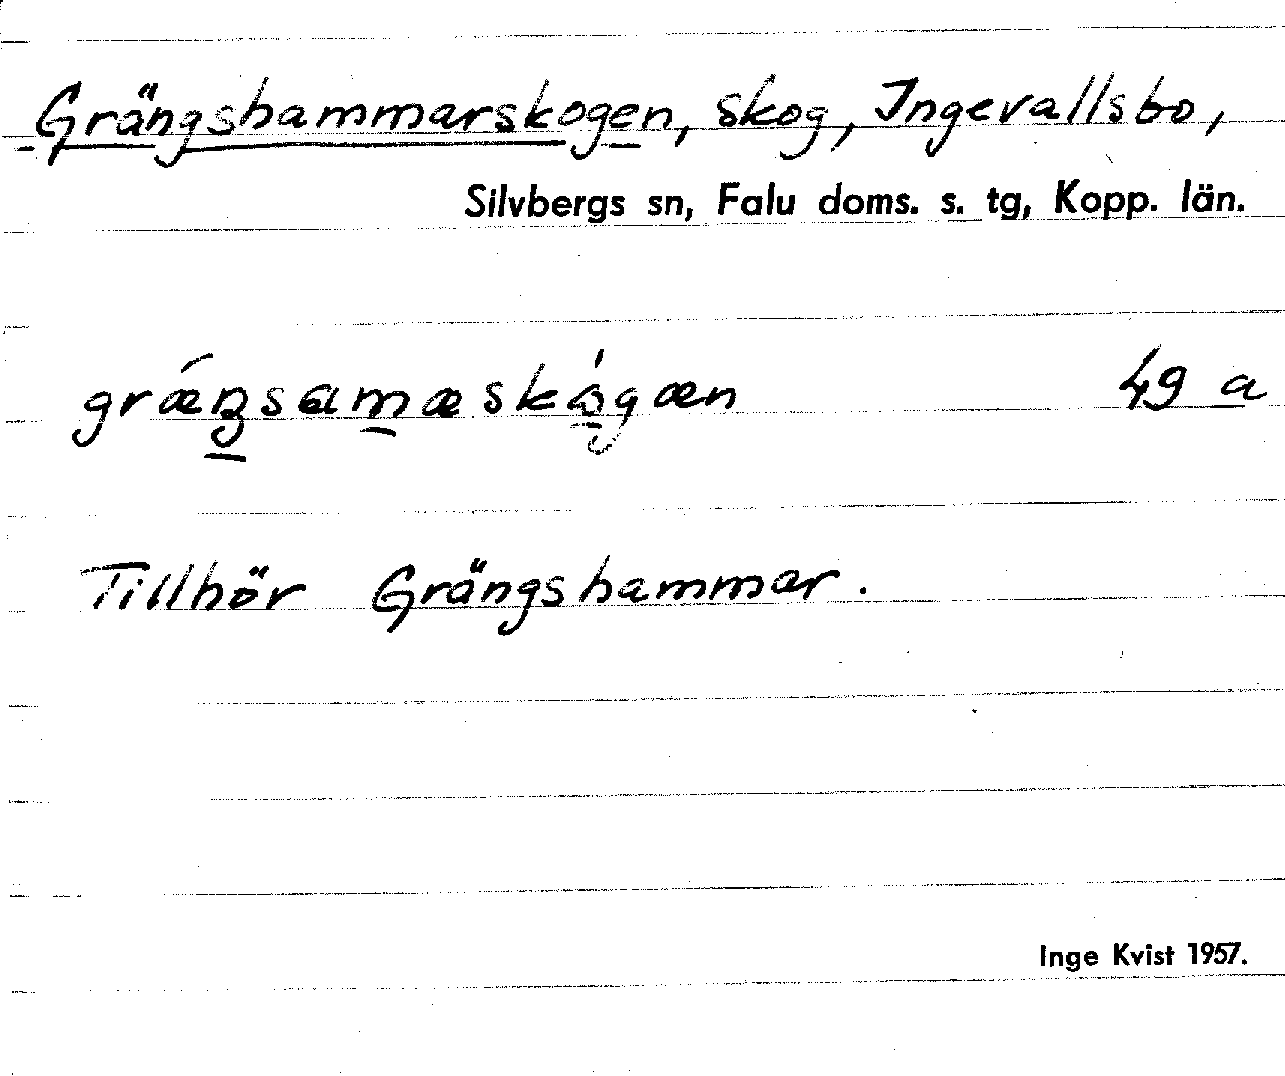 Grängshammarskogen, skog, Ingevallsbo,
Silvbergs sn, Falu doms. s. tg, Kopp. län.
grǽŋsamæskògæn 49 a
Tillhör Grängshammar.
Inge Kvist 1957.